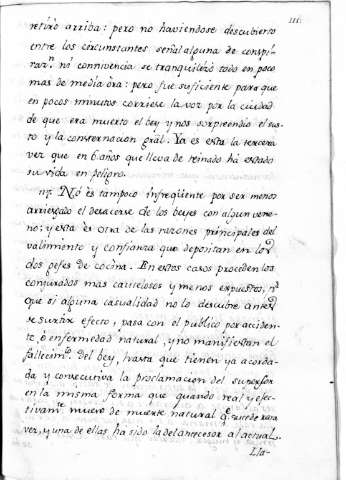 111.
retiró arriba: pero no haviendose descubierto
entre los circunstantes señal alguna de conspi-
raz.n ni connivencia se tranquilizó todo en poco
mas de media óra: pero fue suficiente para que
en pocos minutos corriese la voz por la ciudad
de que era muerto el bey y nos sorprendió el sus-
to y la consternacion grãl. Ya es esta la tercera
vez que en 6 años que lleva de reinado há estado
su vida en peligro.
117. Nó és tampoco infreqüente por ser menos
arriesgado el desacerse de los beyes con algun vene-
no; y esta és otra de las razones principales del
valimiento y confianza que depositan en los
dos gefes de cocina. En estos casos proceden los
conjurados mas cautelosos y menos expuestos, p.r
que si alguna casualidad no lo descubre antes
de surtir efecto, pasa con el público por acciden-
te, ó enfermedad natural, y no manifiestan el
fallecim.to del bey, hasta que tienen ya acorda-
da y consecutiva la proclamacion del superior
en la misma forma que quando real y efec-
tivam.te muere de muerte natural q.e sucede rara
vez, y una de ellas ha sido la del antecesor al actual.
Lla-